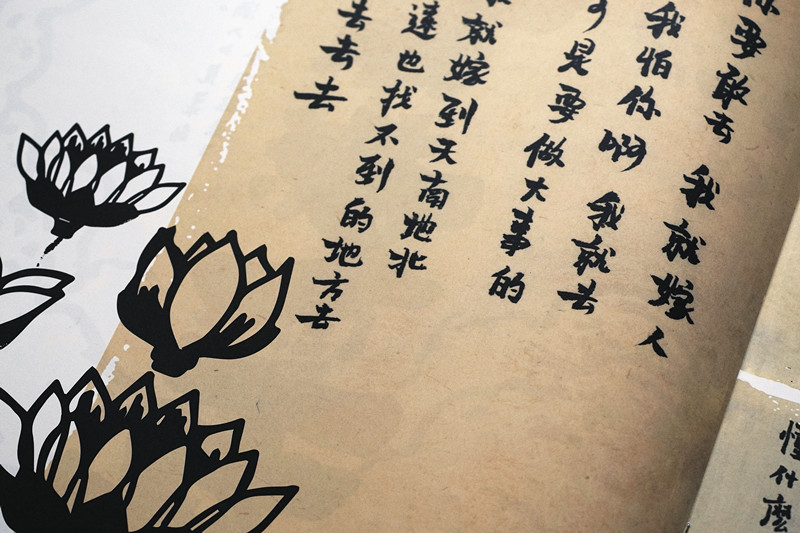 你要敢去 我就嫁人
我怕你啊 我就去
是要做大事的
就嫁到天南地北
遠也找不到的地方去
去去去
懂什麼